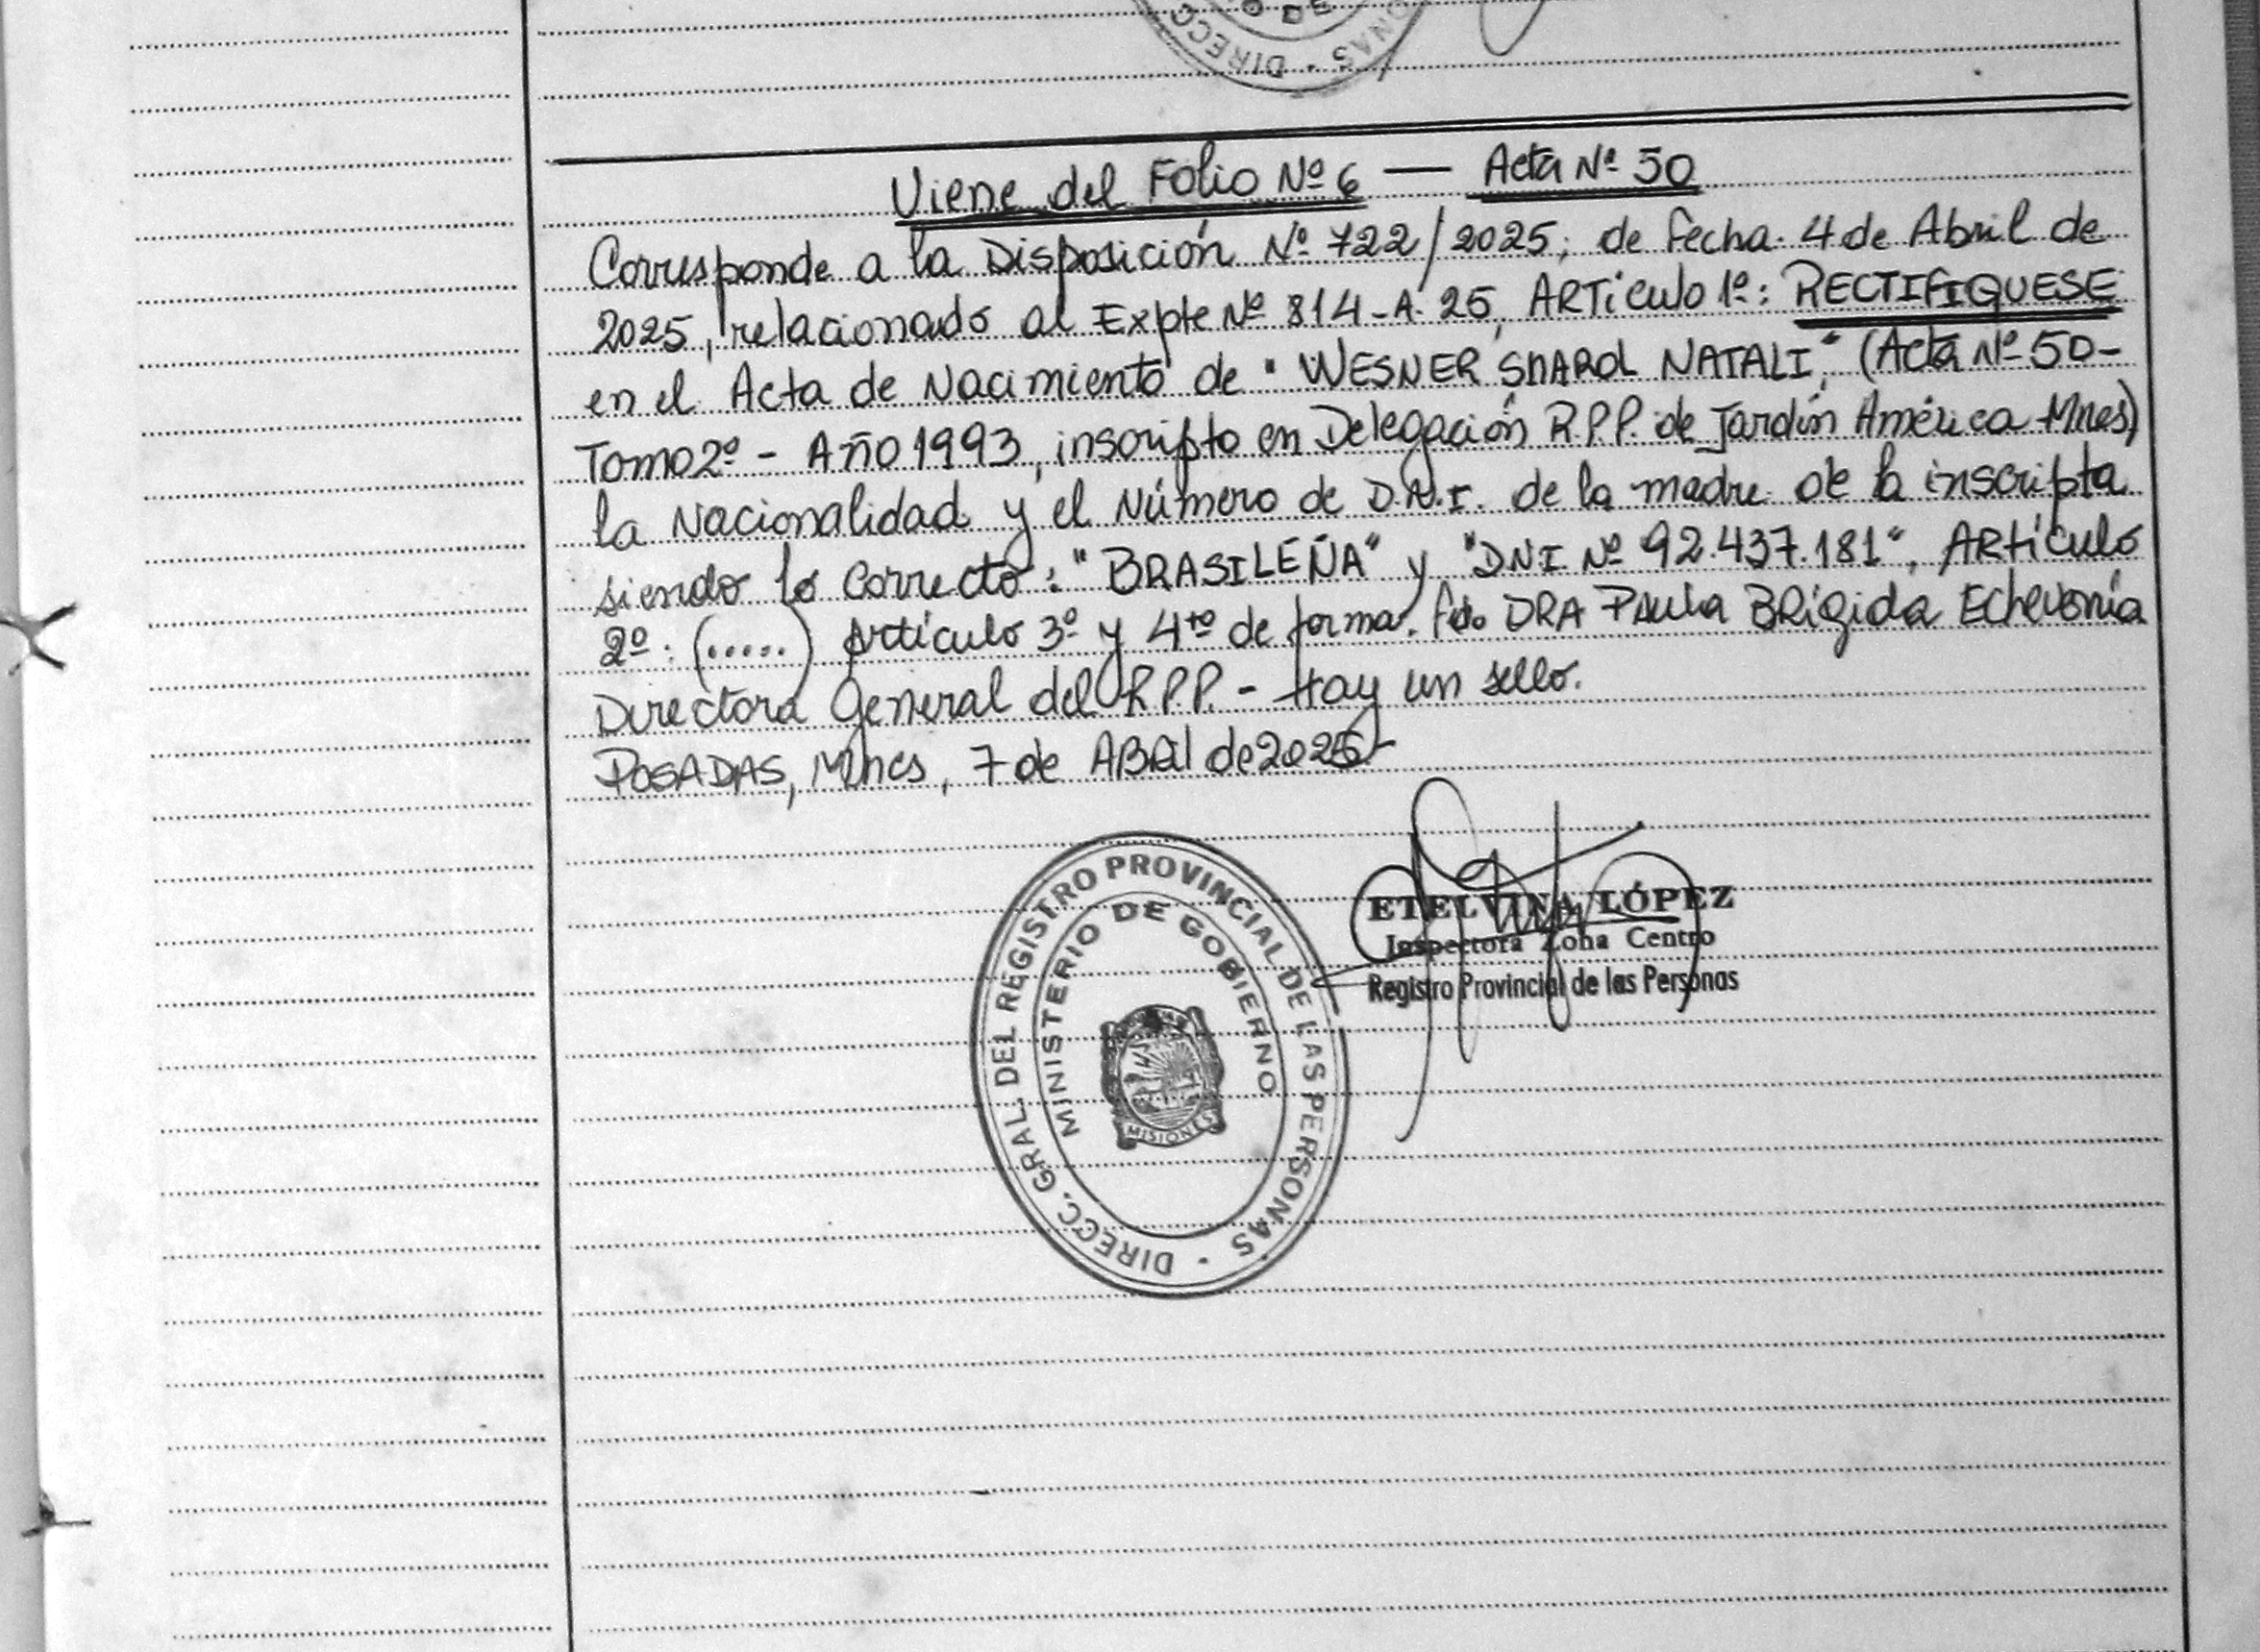 DIRECC
O DE
ONAS
Viene del Folio Nº 6 — Acta Nº 50
Corresponde a la Disposición Nº 722/2025, de fecha 4 de Abril de
2025, relacionado al Expte Nº 814-A-25, ARTículo 1º: RECTIFIQUESE
en el Acta de Nacimiento de "WESNER, SHAROL NATALI," (Acta Nº 50-
Tomo 2º - Año 1993, inscripto en Delegación R.P.P. de Jardín América Mnes)
la Nacionalidad y el Número de D.N.I. de la madre de la inscripta
siendo lo correcto: "BRASILEÑA" y "DNI Nº 92.437.181". ARTículo
2º: (.....) Artículo 3º y 4to de forma. Fdo DRA PAula BRígida Echeverría
Directora General del R.P.P. - Hay un sello.
POSADAS, Mnes, 7 de ABRil de 2025-
DIRECC. GRAL. DEL REGISTRO PROVINCIAL DE LAS PERSONAS
MINISTERIO DE GOBIERNO
MISIONES
ETELVINA LÓPEZ
Inspectora Zona Centro
Registro Provincial de las Personas